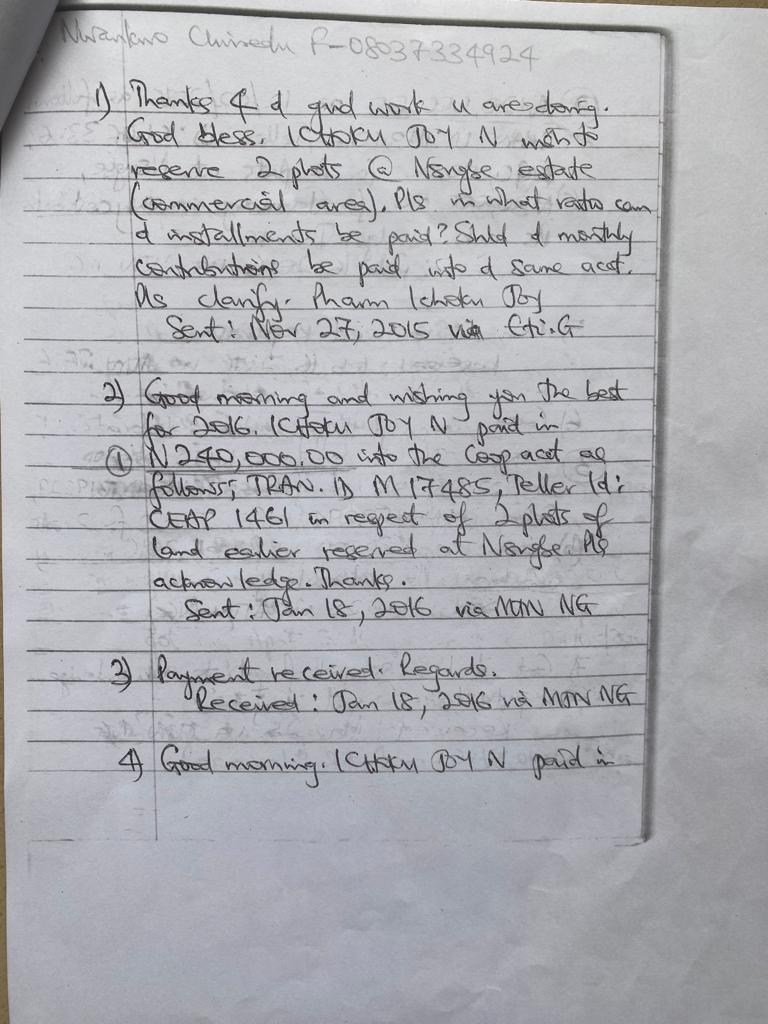 Nwankwo Chinedu P-08037334924
1) Thanks 4 d gud work u are doing.
God bless. ICHOKU JOY N wish to
reserve 2 plots @ Nsugbe estate
(commercial area). Pls in what ratio can
d installments be paid? Shld d monthly
contributions be paid into d same acct.
Pls clarify. Pharm Ichoku Joy
Sent: Nov 27, 2015 via Eti.G
2) Good morning and wishing you the best
for 2016. ICHOKU JOY N paid in
① N240,000.00 into the Coop acct as
follows; TRAN. ID M17485, Teller Id:
CEAP 1461 in respect of 2 plots of
land earlier reserved at Nsugbe. Pls
acknowledge. Thanks.
Sent: Jan 18, 2016 via MTN NG
3) Payment received. Regards.
Received: Jan 18, 2016 via MTN NG
4) Good morning. ICHOKU JOY N paid in